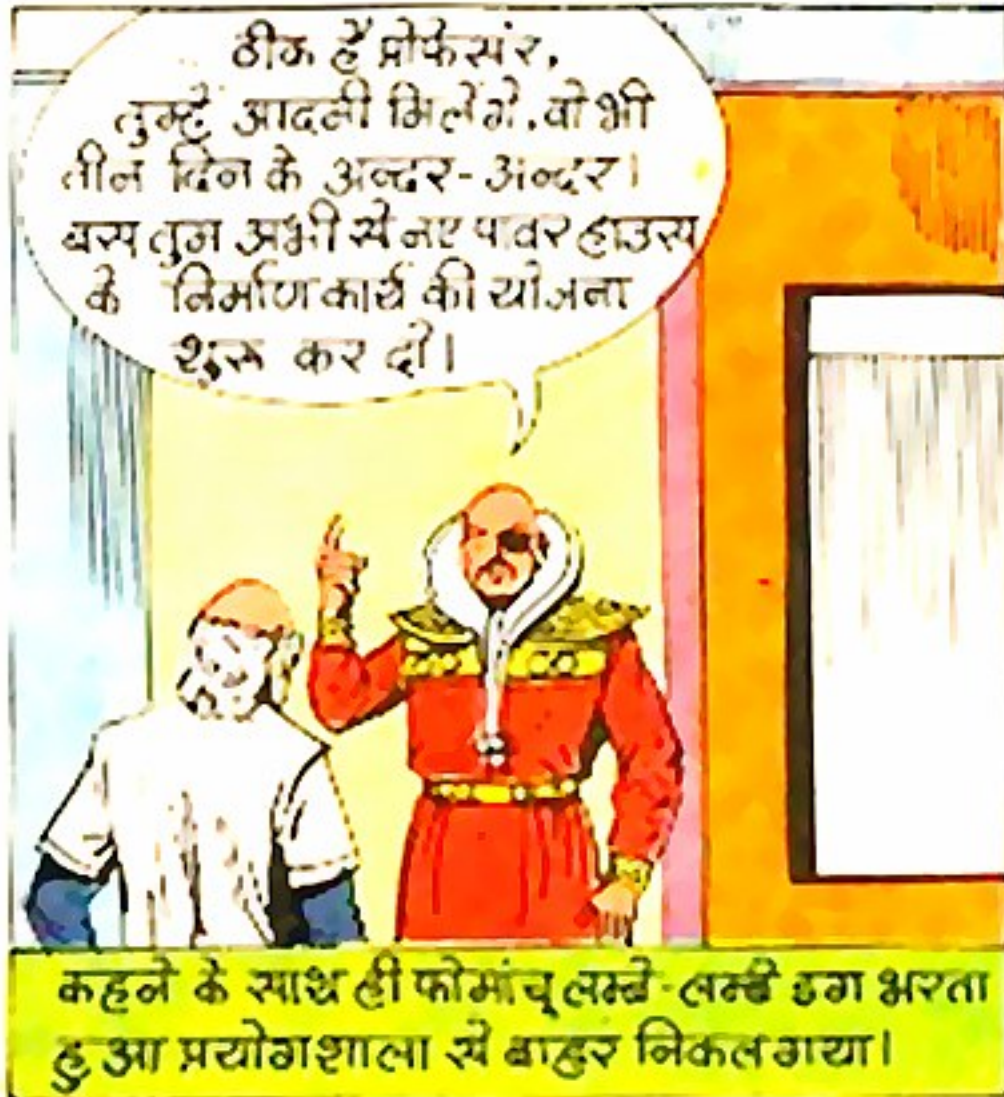 ठीक है प्रोफेसर,
तुम्हें आदमी मिलेंगे, वो भी
तीन दिन के अन्दर-अंन्दर।
बस तुम अभी से नए पावर हाउस
के निर्माण कार्य की योजना
शुरू कर दो।
कहने के साथ ही फोमांचू लम्बे-लम्बे डग भरता
हुआ प्रयोगशाला से बाहर निकल गया।